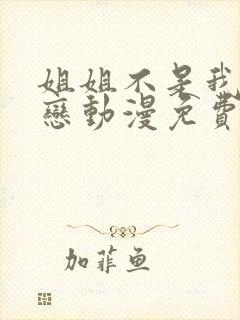 姐姐不是我
戀動漫免費
加菲鱼